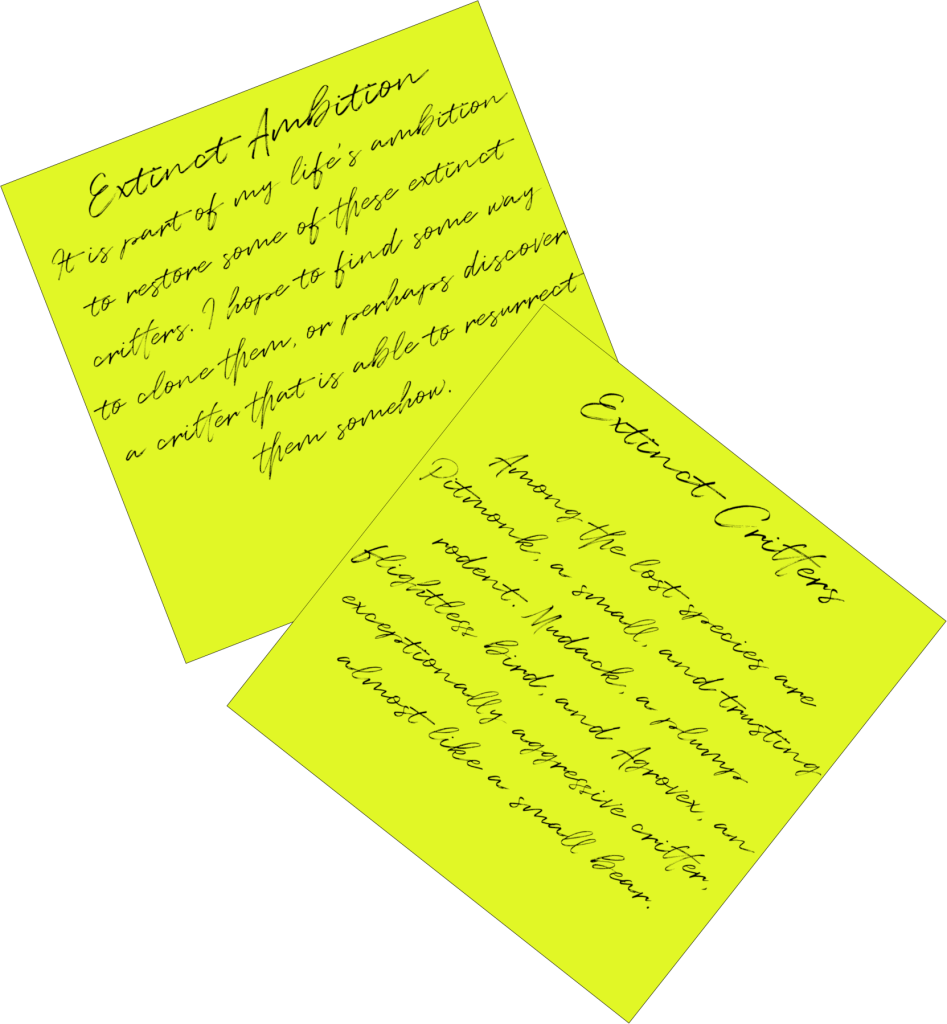 Extinct Ambition
It is part of my life's ambition
to restore some of these extinct
critters. I hope to find some way
to clone them, or perhaps discover
a critter that is able to resurrect
them somehow.
Extinct Critters
Among the lost species are
Pitmonk, a small, and trusting
rodent. Mudack, a plump
flightless bird, and Agrovex, an
exceptionally aggressive critter,
almost like a small bear.